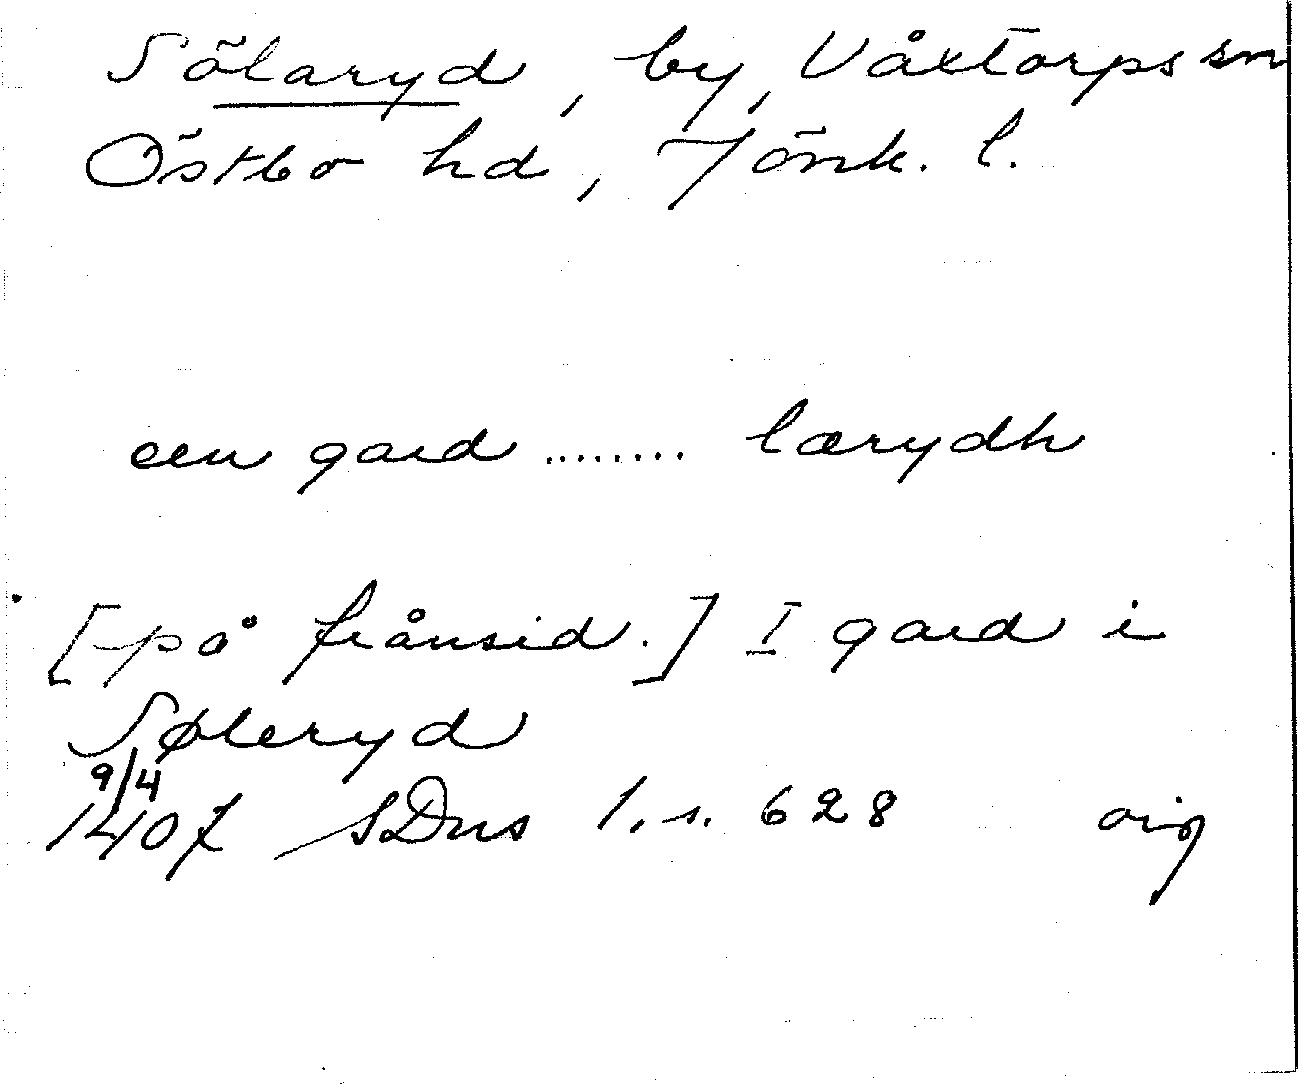 Sölaryd, by, Våxtorps sn
Östbo hd, Jönk. l.
een gard ........ lærydh
[på frånsid.] I gard i
Søleryd
9/4
1407 SDns 1. s. 628 orig